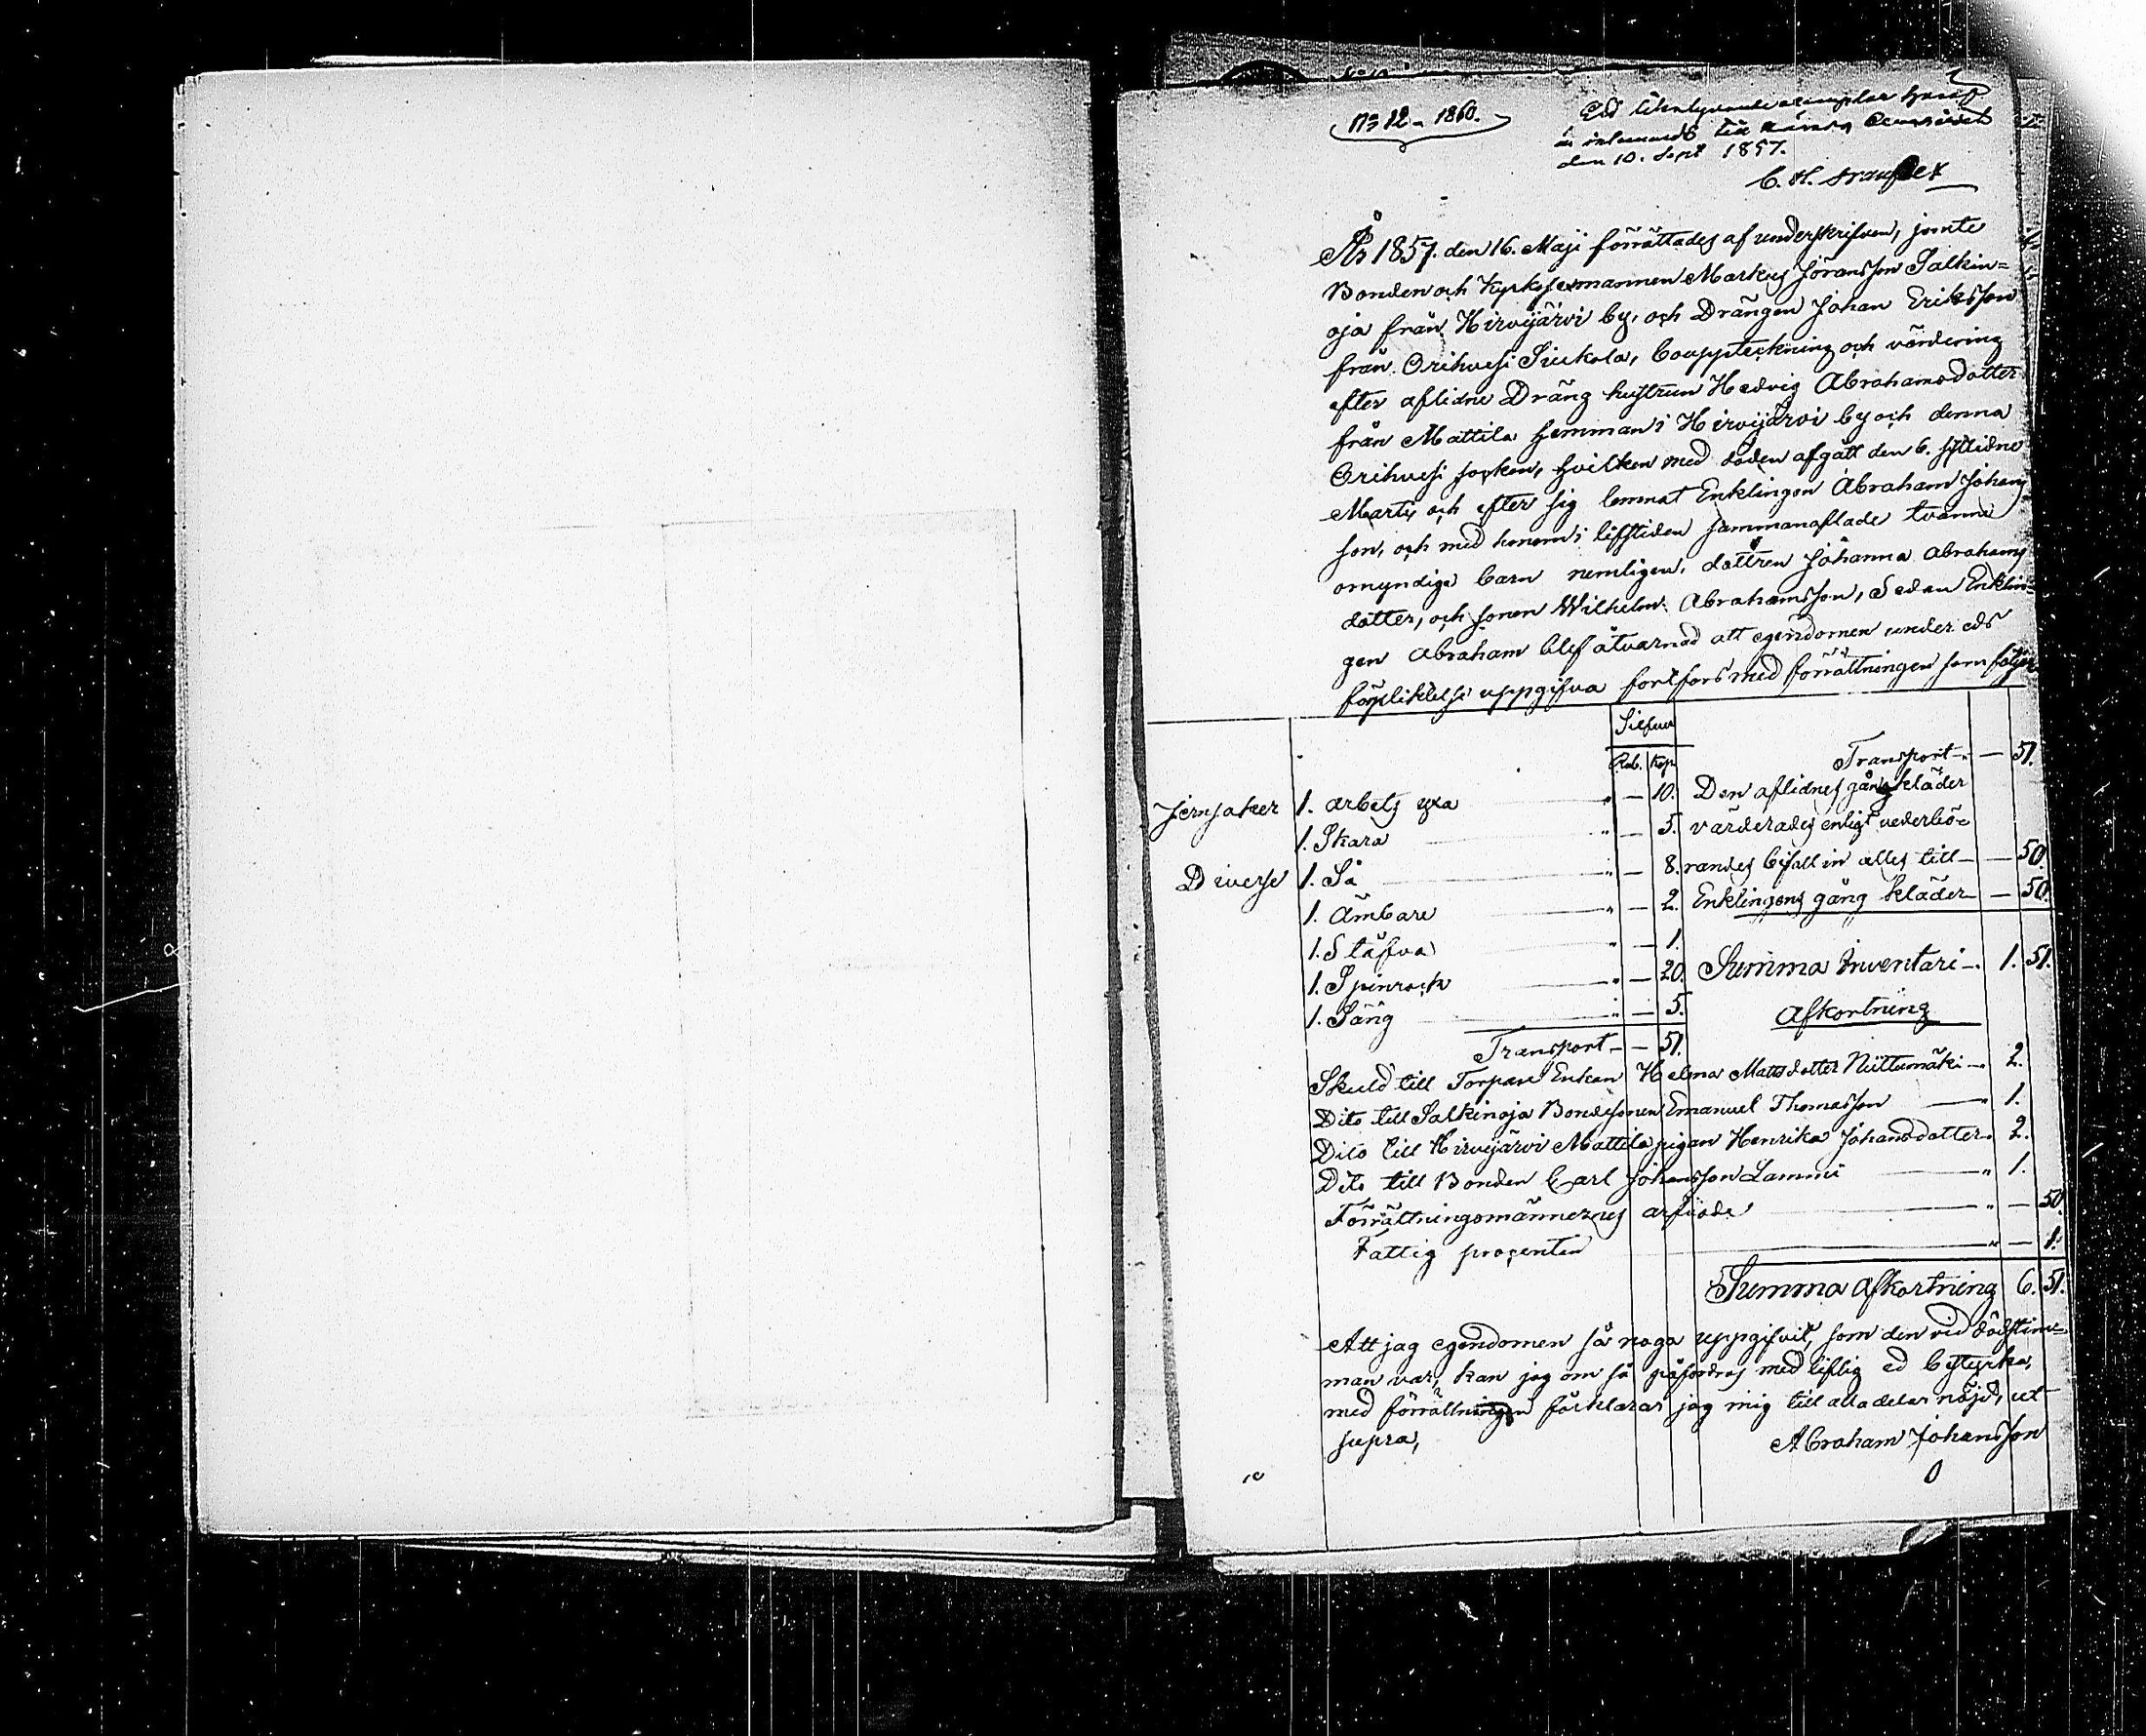 No 12 - 1860.
Ett likalydande exemplar häraf
är inlemnadt till
den 10. Sept 1857.
C. H.
År 1857. den 16. Maji förrättades af underskrifven, jemte
Bonden och Kyrkosexmannen Markus Jöransson Salkin=
oja från Hirvijärvi by, och Drängen Johan Eriksson
från Orihvesi Siukola, bouppteckning och värdering
efter aflidne Dräng hustrun Hedvig Abrahamsdotter
från Mattila hemman i Hirvijärvi by och denna
Orihvesi socken, hvilken med döden afgått den 6. sistlidne
Marti och efter sig lemnat Enklingen Abraham Johans
son, och med honom i lifstiden sammanaflade tvänne
omyndiga barn nemligen, dottren Johanna Abrahams
dotter, och sonen Wilhelm Abrahamsson, Sedan Enklin=
gen Abraham blef åtvarnad att egendomen under eds
förpliktelse uppgifva fortfors med förrättningen som följer
Silfver
Rub. Kop.
Jernsaker 1. arbets yxa " — 10.
1. Skara " — 5.
Diverse 1. Så " — 8.
1. Ämbare " — 2.
1. Stäfva " — 1.
1. Spinrock " — 20.
1. Säng " — 5.
Transport — — 51.
Transport — — 51.
Den aflidnes gångkläder
värderades enligt vederbö=
randes bifall in alles till — — 50
Enklingens gång kläder — — 50.
Summa Inventari — 1. 51.
Afkortning
Skuld till Torpare Enkan Helena Mattsdotter Niittumäki — 2.
Dito till Salkinoja Bondesonen Emanuel Thomasson " 1.
Dito till Hirvijärvi Mattila pigan Henrika Johansdotter " 2.
Dito till Bonden Carl Johansson Lammi " 1.
Förrättningsmännernes arfvode " — 50.
Fattig procenten " — 1.
Summa Afkortning 6. 51.
Att jag egendomen så noga uppgifvit, som den vid dödstim=
man var, kan jag om så påfordras med liflig ed bestyrka,
med förrättningen förklarar jag mig till alla delar nöjd, ut
supra,
Abraham Johansson